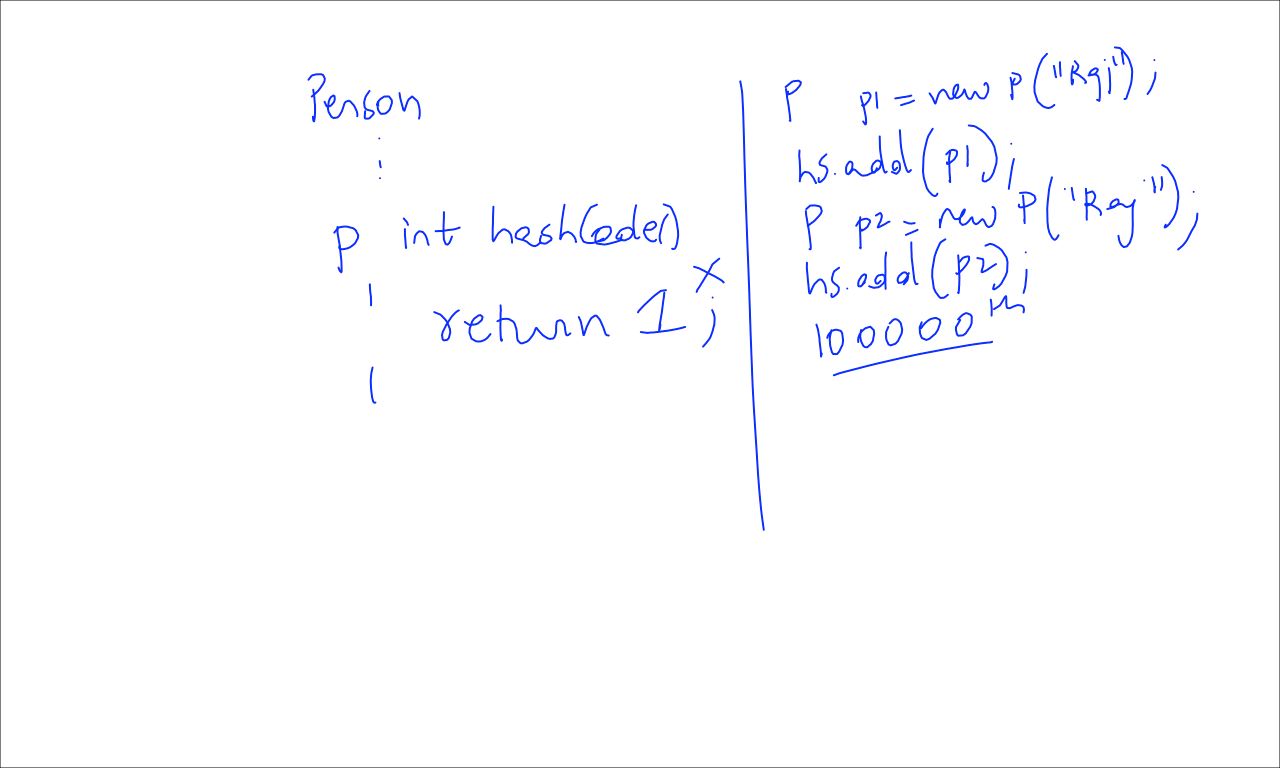 Person
:
P int hashCode()
return 1;
x
P p1 = new P("Raj");
hs.add(p1);
P p2 = new P("Raj");
hs.add(p2);
100000th